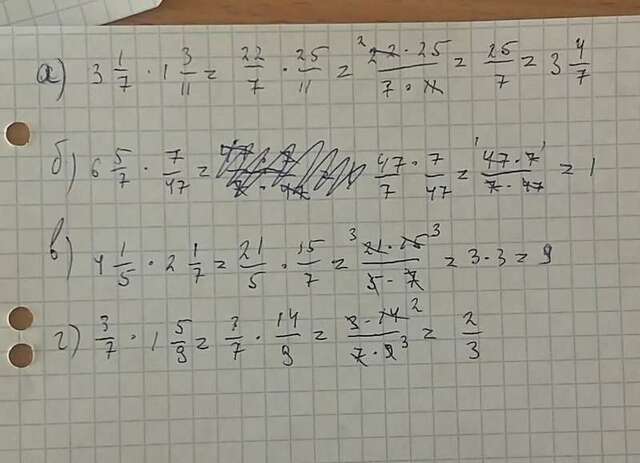 а) 3 1/7 · 1 3/11 = 22/7 · 25/11 = ²22 · 25 / 7 · 11 = 25/7 = 3 4/7
б) 6 5/7 · 7/47 = 47/7 · 7/47 = ¹47 · 7¹ / 7 · 47 = 1
в) 4 1/5 · 2 1/7 = 21/5 · 15/7 = ³21 · 15³ / 5 - 7 = 3 · 3 = 9
г) 3/7 · 1 5/9 = 3/7 · 14/9 = 3 · 14² / 7 · 9³ = 2/3